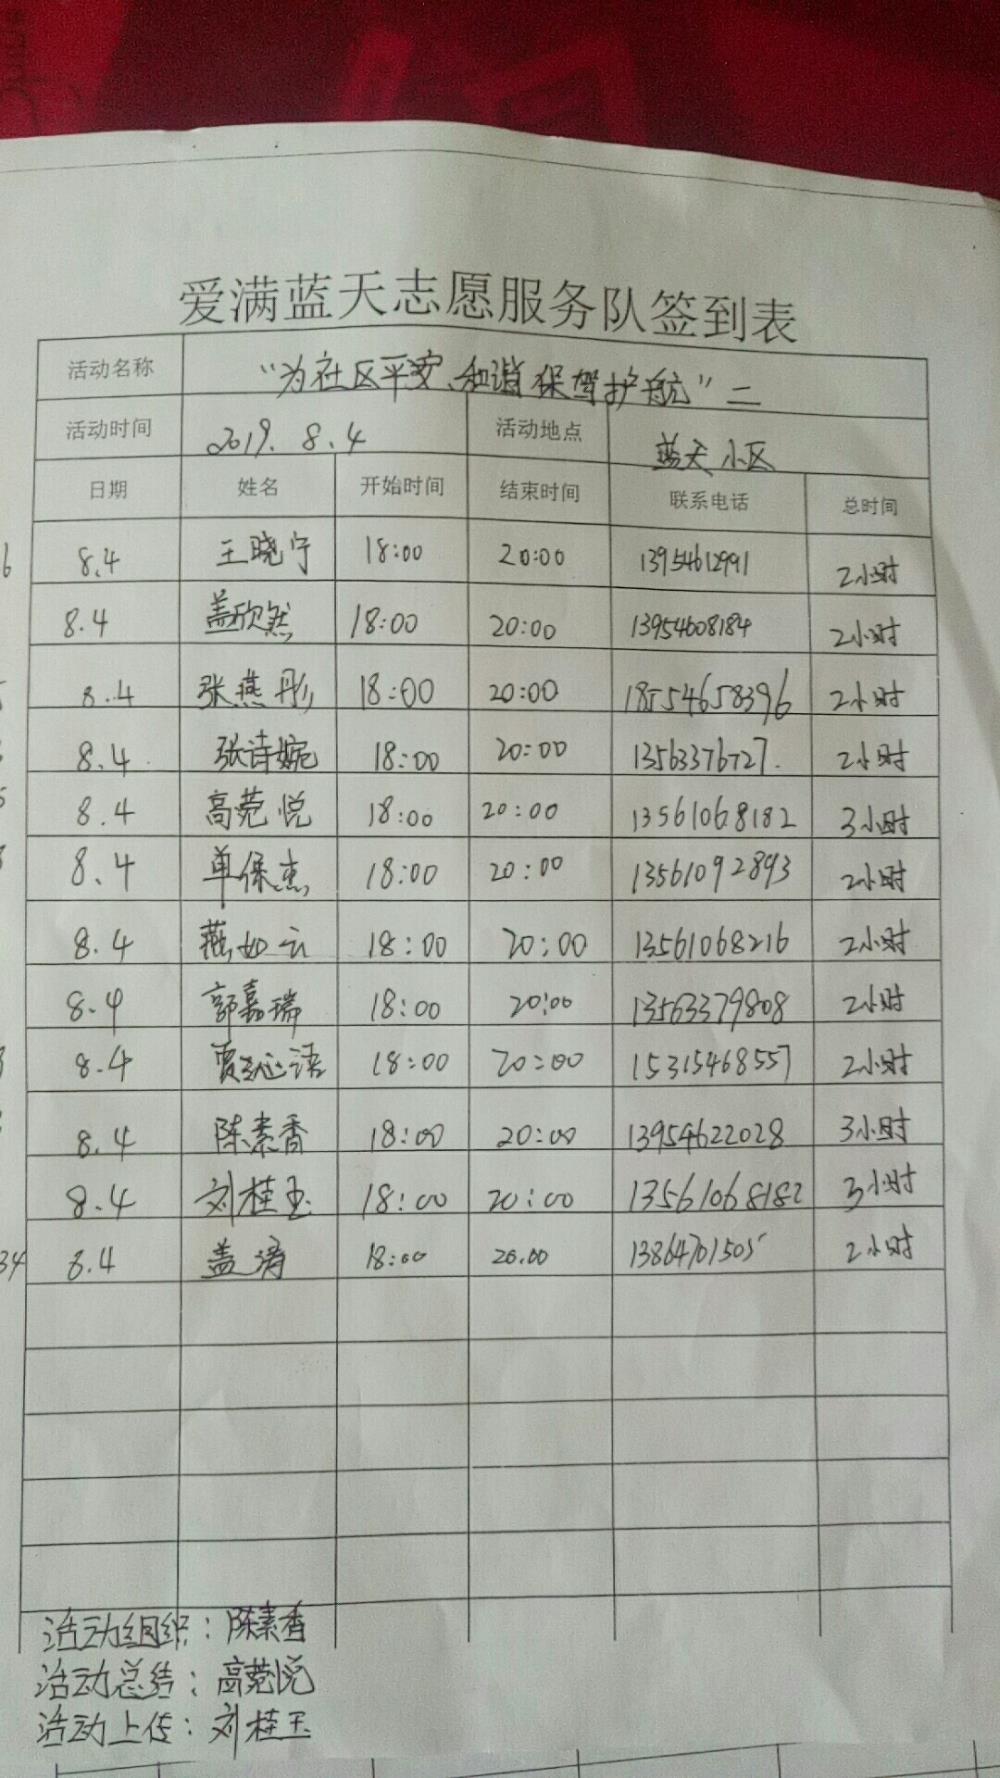 爱满蓝天志愿服务队签到表
活动名称 “为社区平安、和谐保驾护航”二
活动时间 2019.8.4 活动地点 蓝天小区
日期 姓名 开始时间 结束时间 联系电话 总时间
8.4 王晓宁 18:00 20:00 13954612991 2小时
8.4 盖欣然 18:00 20:00 13954608184 2小时
8.4 张燕彤 18:00 20:00 18554658396 2小时
8.4 张诗婉 18:00 20:00 13563376727. 2小时
8.4 高菀悦 18:00 20:00 13561068182 3小时
8.4 单保杰 18:00 20:00 13561092893 2小时
8.4 燕如云 18:00 20:00 13561068216 2小时
8.4 郭嘉瑞 18:00 20:00 13563379808 2小时
8.4 贾 语 18:00 20:00 15315468557 2小时
8.4 陈素香 18:00 20:00 13954622028 3小时
8.4 刘桂玉 18:00 20:00 13561068182 3小时
34 8.4 盖涛 18:00 20.00 13864701505 2小时
活动组织：陈素香
活动总结：高菀悦
活动上传：刘桂玉